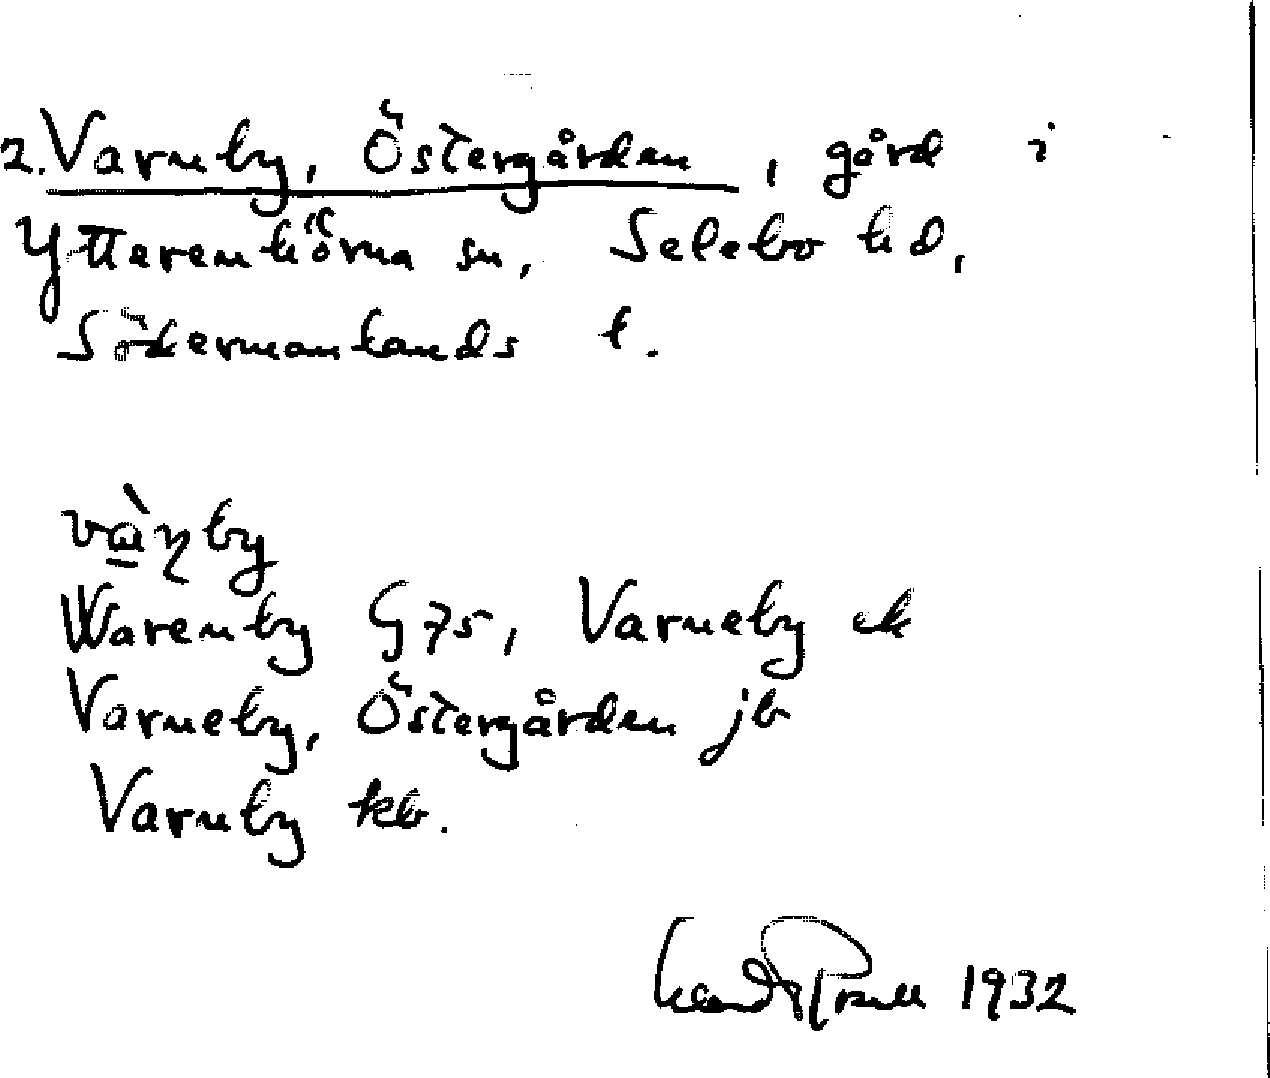 2. Varnby, Östergården, gård i
Ytterenhörna sn, Selebo hd,
Södermanlands l.
và̱ɳby
Warenby G 75, Varneby ek
Varneby, Östergården jb
Varnby kb.
1932